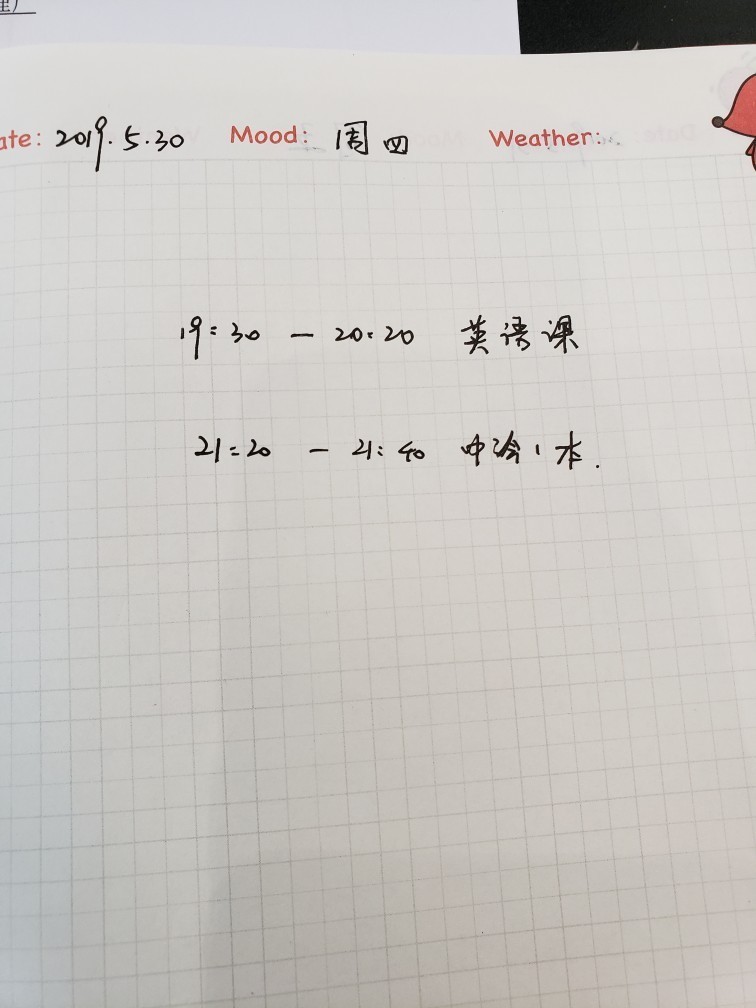 理）
ate: 2019.5.30 Mood: 周四 Weather:
19:30 — 20:20 英语课
21:20 — 21:40 冲冷1本.